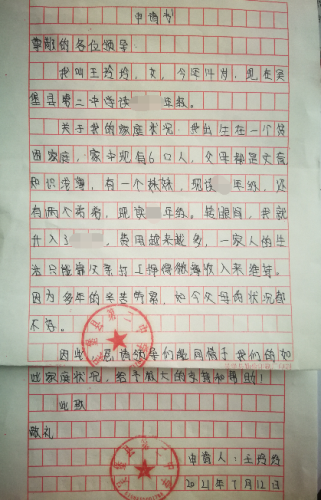 申请书
尊敬的各位领导
我叫王玲玲，女，今年14岁，现在
堡县第二中学读 年级。
关于我的家庭状况，我出生在一个贫
困家庭，家中现有6口人，父母都是文盲
知识浅薄，有一个妹妹，现读 年级，还
有两个弟弟，现读 年级。转眼间，我就
升入 ，费用越来越多，一家人的生
活只能靠父亲打工挣得微薄收入来维持。
因为多年的辛苦劳累，如今父母两状况都
不好。
因此，恳请领导们能同情于我们的如
此家庭状况，给予极大的支持和帮助！
此致
敬礼
申请人：王玲玲
2021年7月12日
堡县第二中学
堡县第二中学